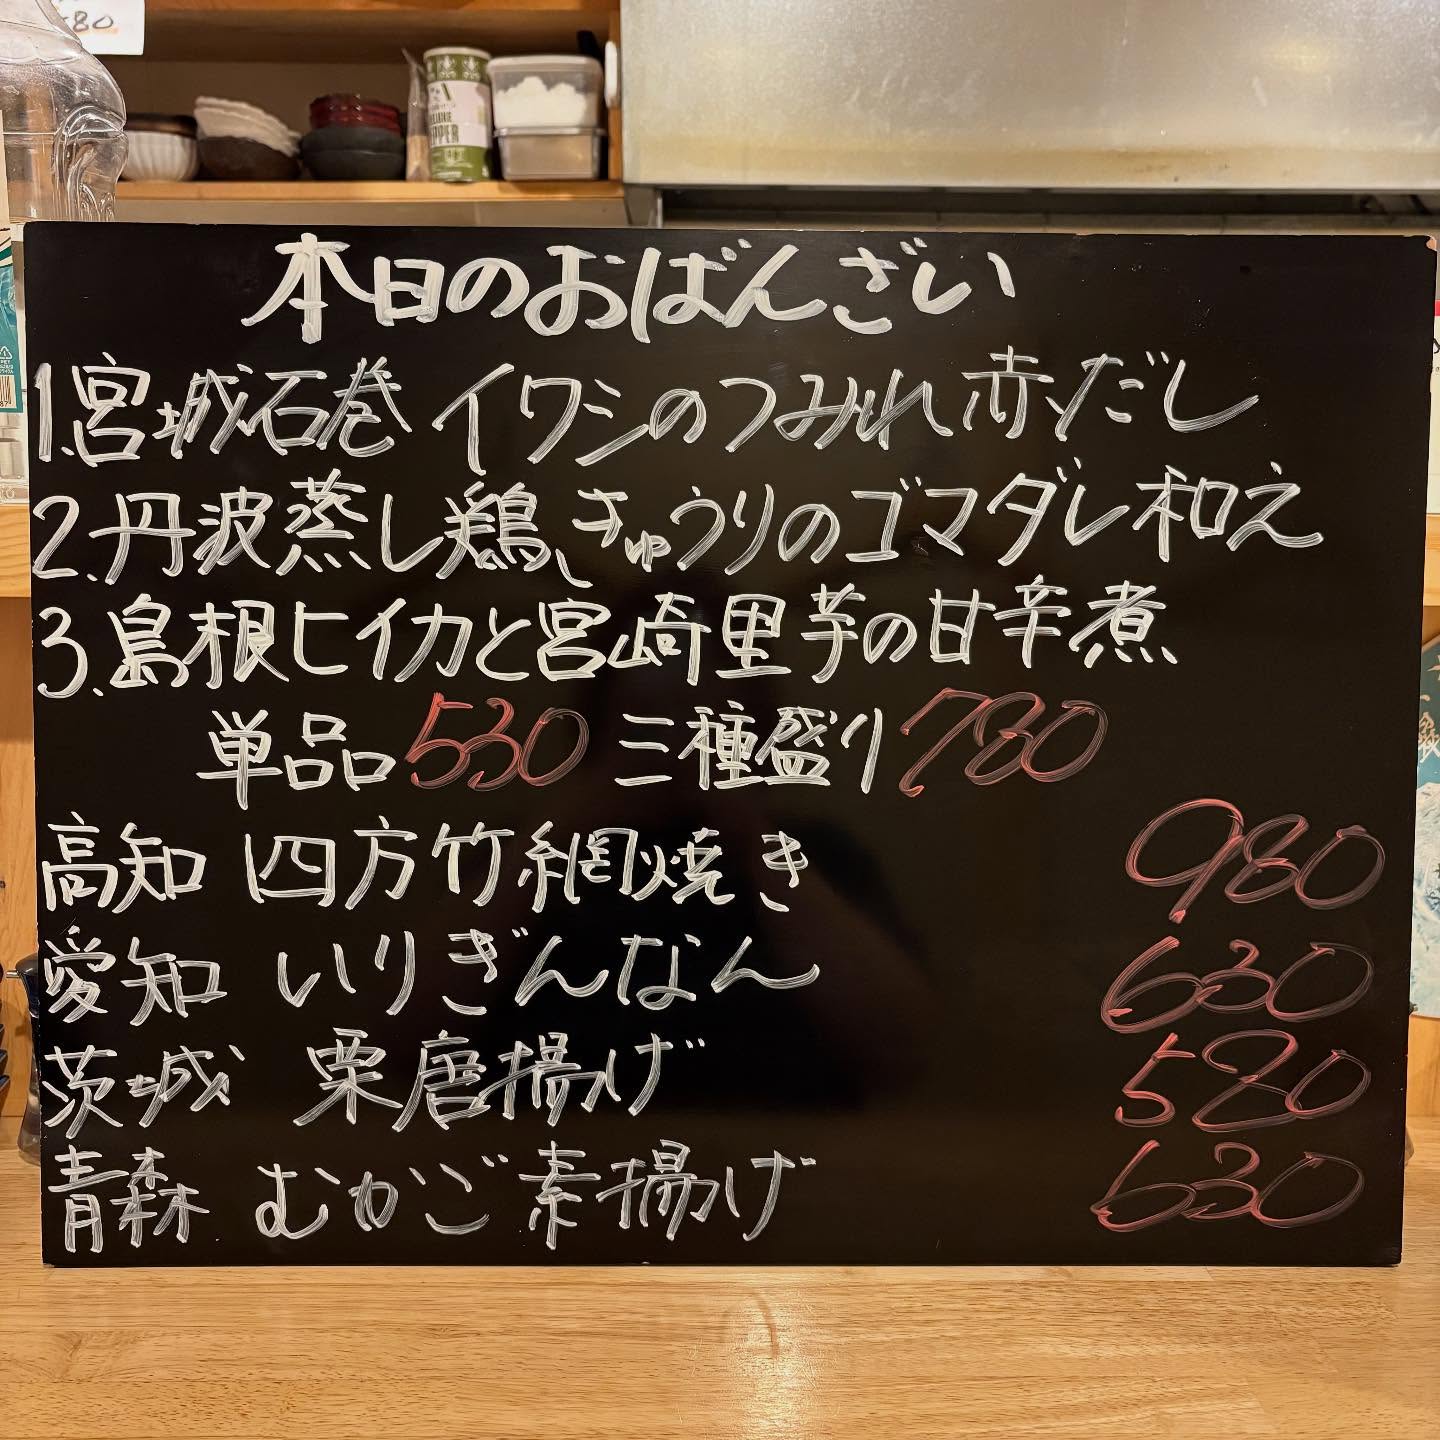 680
本日のおばんざい
1.宮城石巻 イワシのつみれ赤だし
2.丹波蒸し鶏、きゅうりのゴマダレ和え
3.島根ヒイカと宮崎里芋の甘辛煮
単品530 三種盛り780
高知 四方竹網焼き 980
愛知 いりぎんなん 630
茨城 栗唐揚げ 520
青森 むかご素揚げ 630